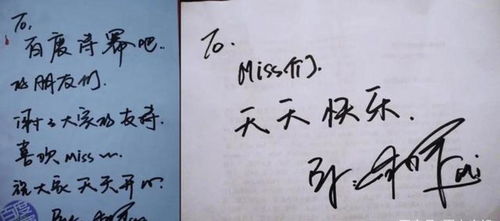 To,
百度诗幂吧.
的朋友们.
谢谢大家的支持.
喜欢Miss
祝大家 天天开心
By
To.
Miss们.
天天快乐.
By.